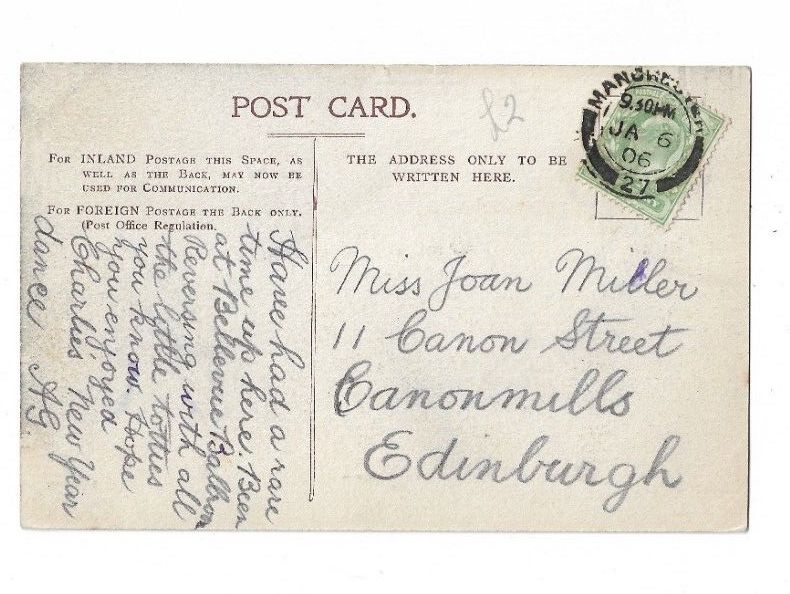 POST CARD.
£2
MANCHESTER
9.30PM
JA 6
06
27
FOR INLAND POSTAGE THIS SPACE, AS
WELL AS THE BACK, MAY NOW BE
USED FOR COMMUNICATION.
FOR FOREIGN POSTAGE THE BACK ONLY.
(Post Office Regulation.
THE ADDRESS ONLY TO BE
WRITTEN HERE.
Have had a rare
time up here. Been
at Bellevue Ballroom
Reversing with all
the little totties
you know. Hope
you enjoyed
Charlies' New Year
dance AG.
Miss Joan Miller
11 Canon Street
Canonmills
Edinburgh